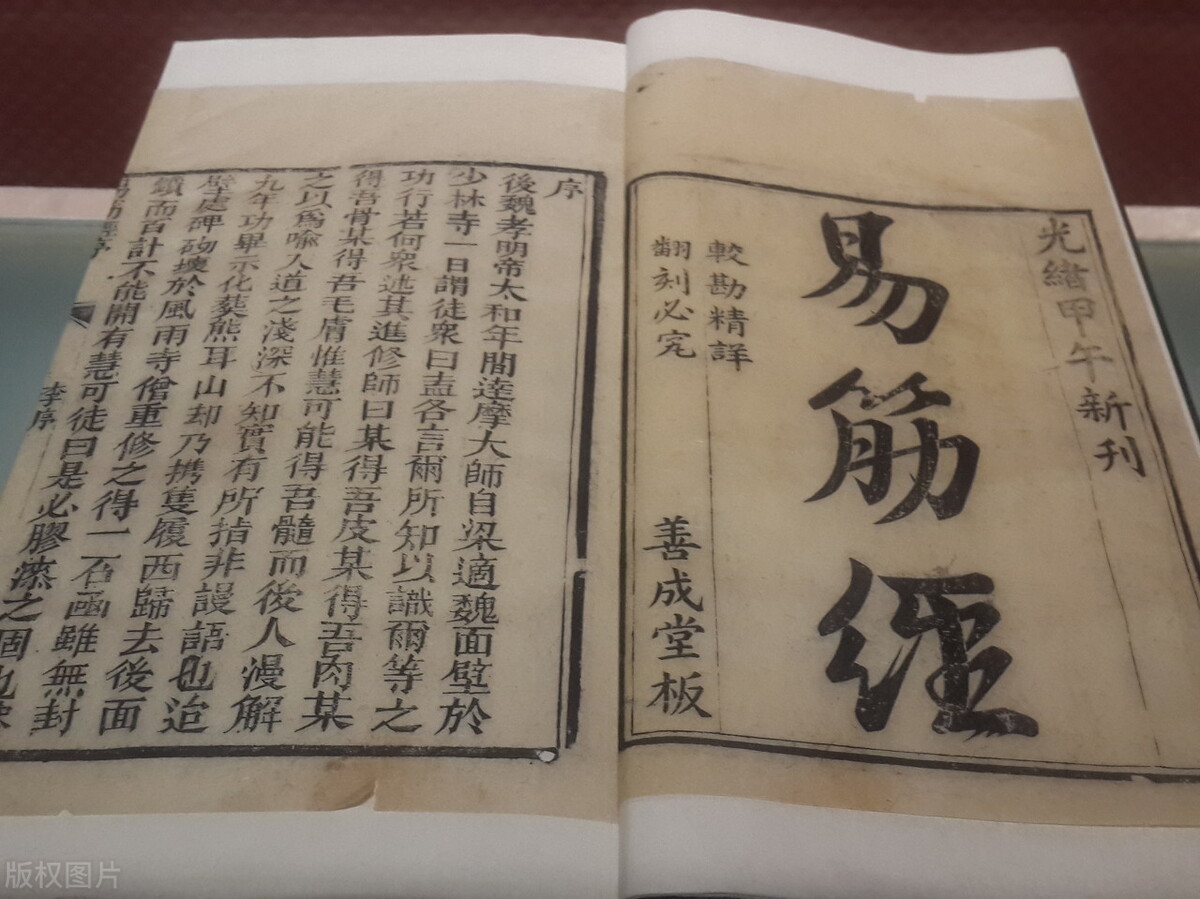 光緒甲午新刊
易筋經
較勘精詳
翻刻必究
善成堂板
序
後魏孝明帝太和年間達摩大師自梁適魏面壁於
少林寺一日謂徒衆曰盍各言爾所知以識爾等之
功行若何衆述其進修師曰某得吾皮某得吾肉某
得吾骨某得吾毛膚惟慧可能得吾髓而後人漫解
之以爲喻入道之淺深不知實有所指非謾語也迨
九年功畢示化葬熊耳山却乃携隻履西歸去後面
壁處碑砌壞於風雨寺僧重修之得一石函雖無封
鎖而百計不能開有慧可徒曰是必膠漆之固也
易筋經序
李序
版权图片